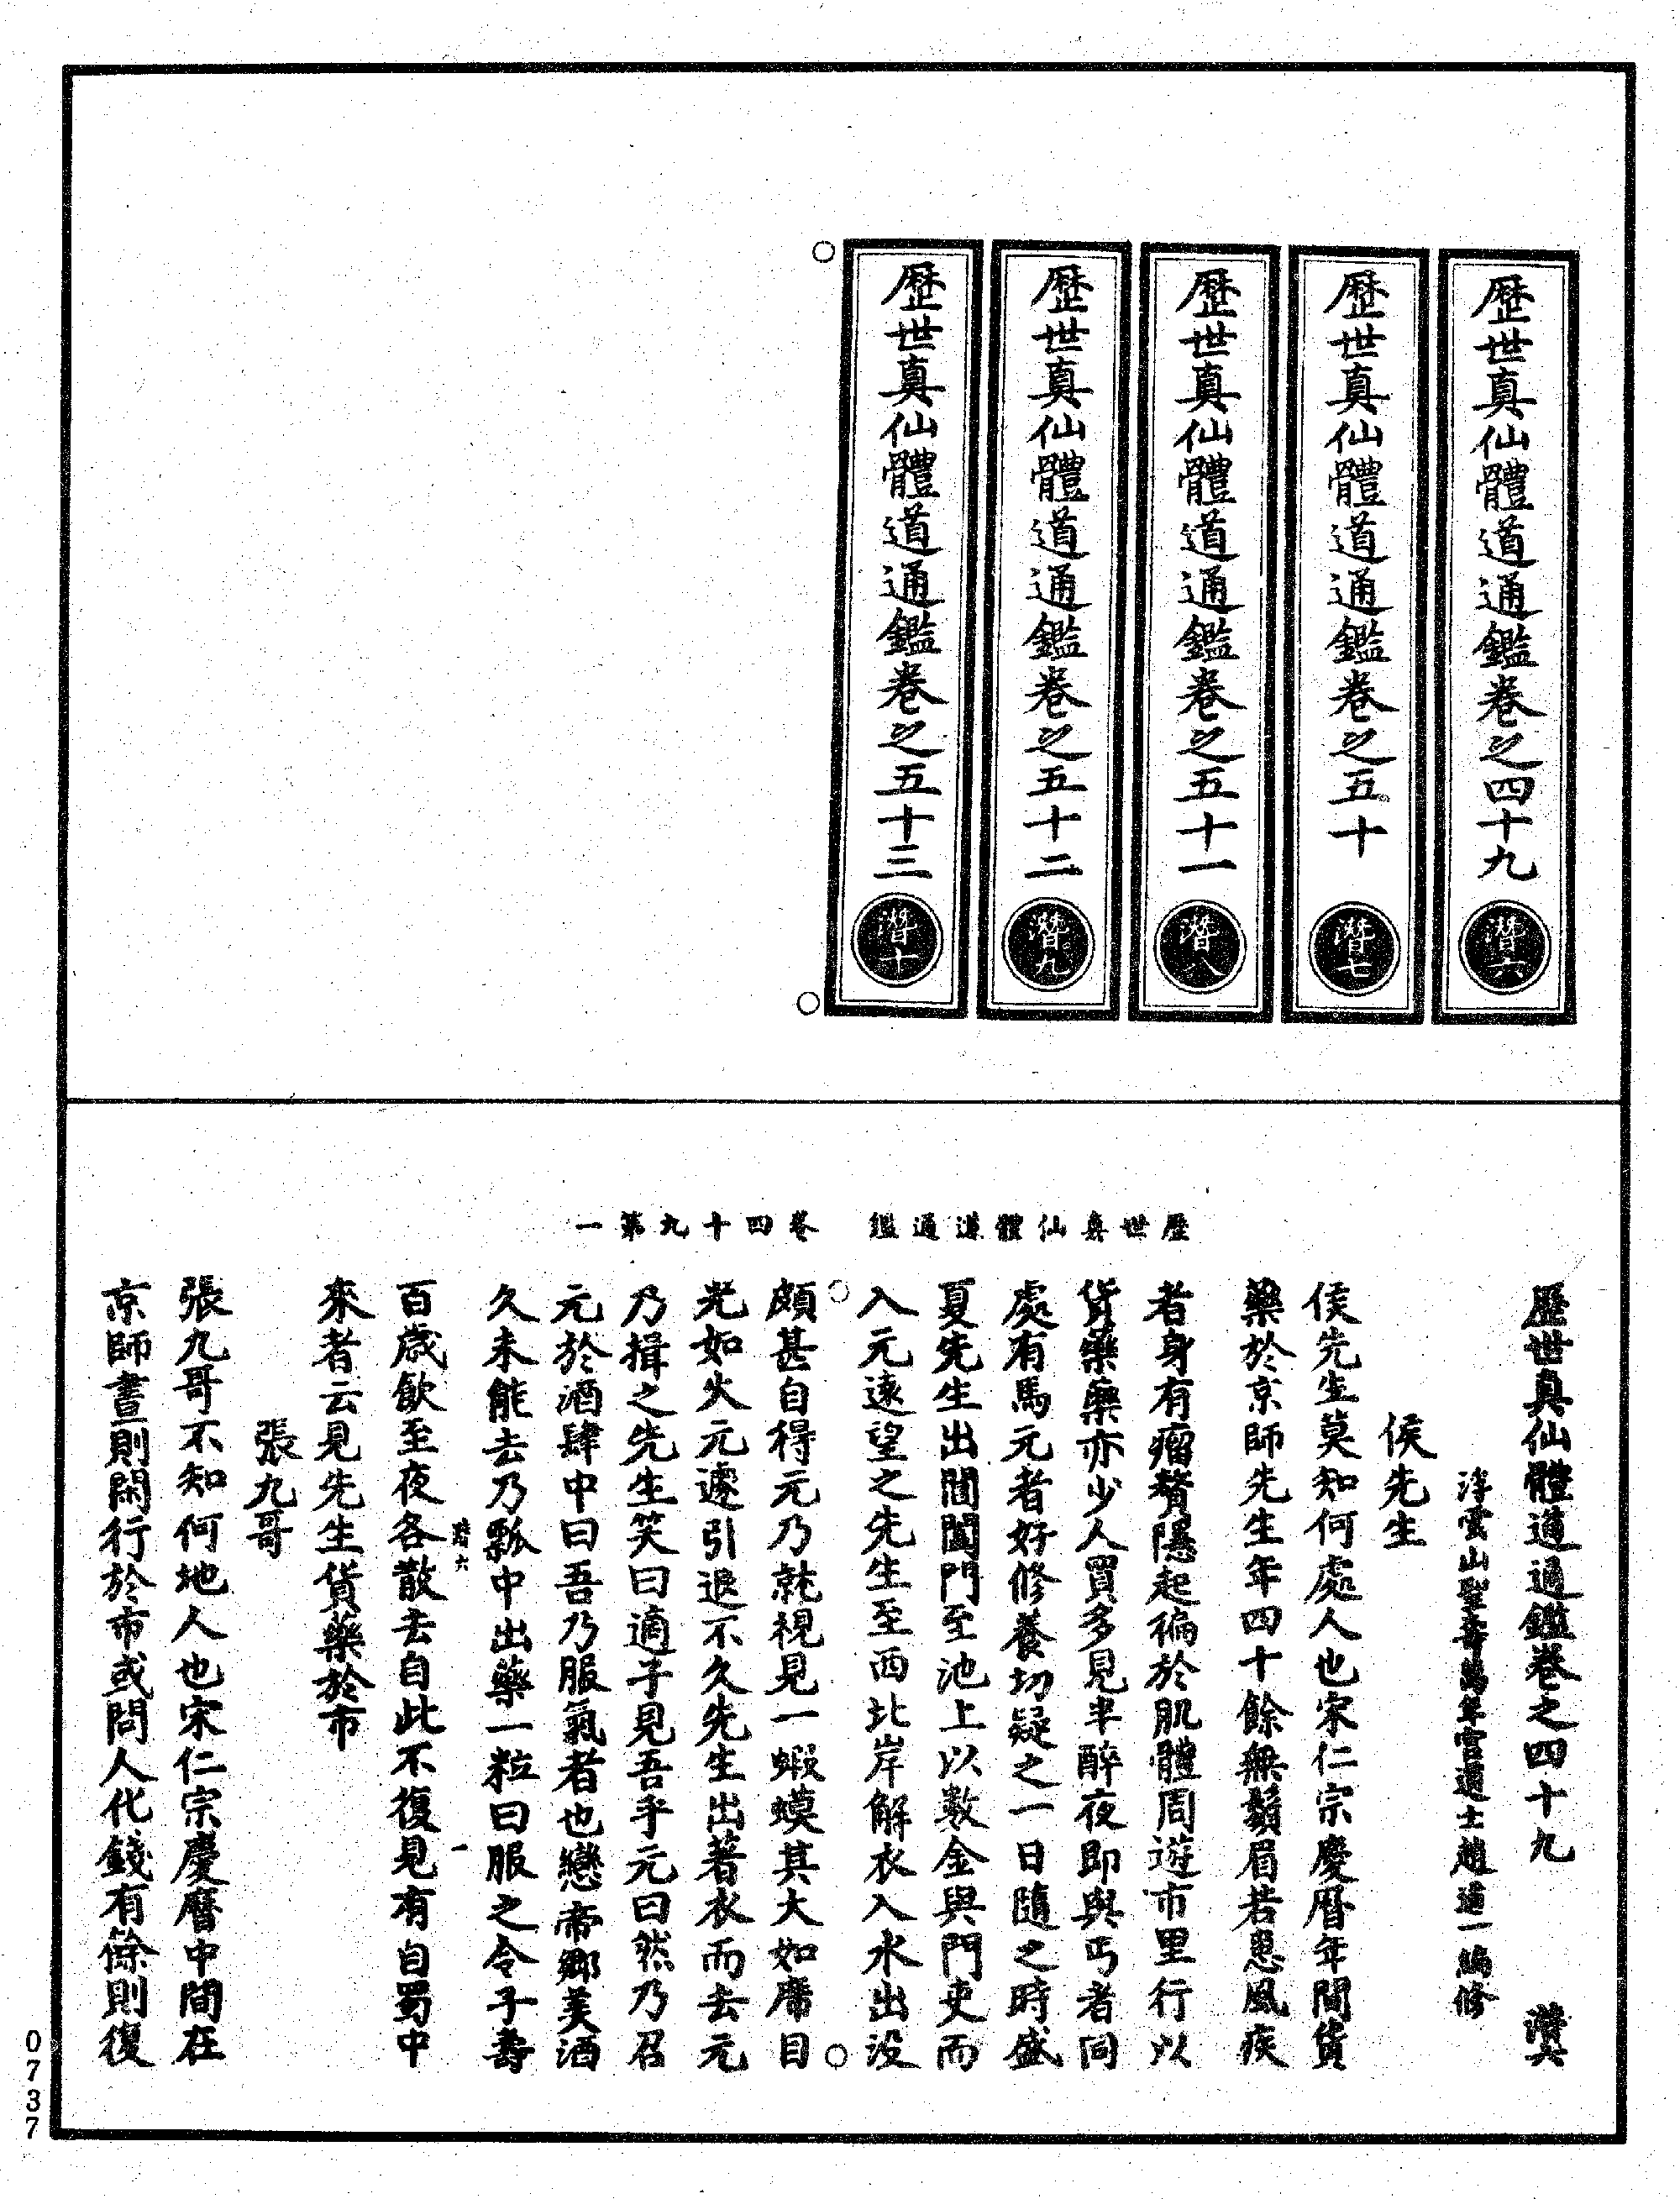 歷世真仙體道通鑑卷之四十九 潛六
歷世真仙體道通鑑卷之五十 潛七
歷世真仙體道通鑑卷之五十一 潛八
歷世真仙體道通鑑卷之五十二 潛九
歷世真仙體道通鑑卷之五十三 潛十
歷世真仙體道通鑑 卷四十九第一
歷世真仙體道通鑑卷之四十九
浮雲山聖壽萬年宮道士趙道一編修
侯先生
侯先生莫知何處人也宋仁宗慶曆年間貨
藥於京師先生年四十餘無鬚眉若患風疾
者身有瘤贅隱起徧於肌體周遊市里行以
貨藥藥亦少人買多見半醉夜即與丐者同
處有馬元者好修養切疑之一日隨之時盛
夏先生出閶闔門至池上以數金與門吏而
入元遠望之先生至西北岸解衣入水出没
頗甚自得元乃就視見一蝦蟆其大如席目
光如火元遽引退不久先生出著衣而去元
乃揖之先生笑曰適子見吾乎元曰然乃召
元於酒肆中曰吾乃服氣者也戀帝鄉美酒
久未能去乃瓢中出藥一粒曰服之令子壽
百歲飲至夜各散去自此不復見有自蜀中
潛六 一
來者云見先生貨藥於市
張九哥
張九哥不知何地人也宋仁宗慶曆中間在
京師晝則閑行於市或問人化錢有餘則復
0737